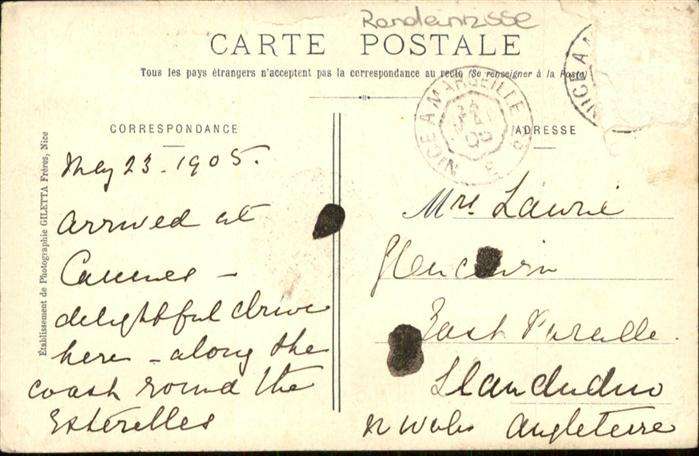 CARTE POSTALE
Tous les pays étrangers n'acceptent pas la correspondance au recto (Se renseigner à la Poste)
NICE A MARSEILLE
NICE A
CORRESPONDANCE
ADRESSE
Établissement de Photographie GILETTA Frères, Nice
May 23. 1905.
Arrived at
Cannes –
delightful drive
here – along the
coast round the
Esterelles
Mrs. Lawrie
Glencairn
East Parade.
Llandudno
N Wales Angleterre